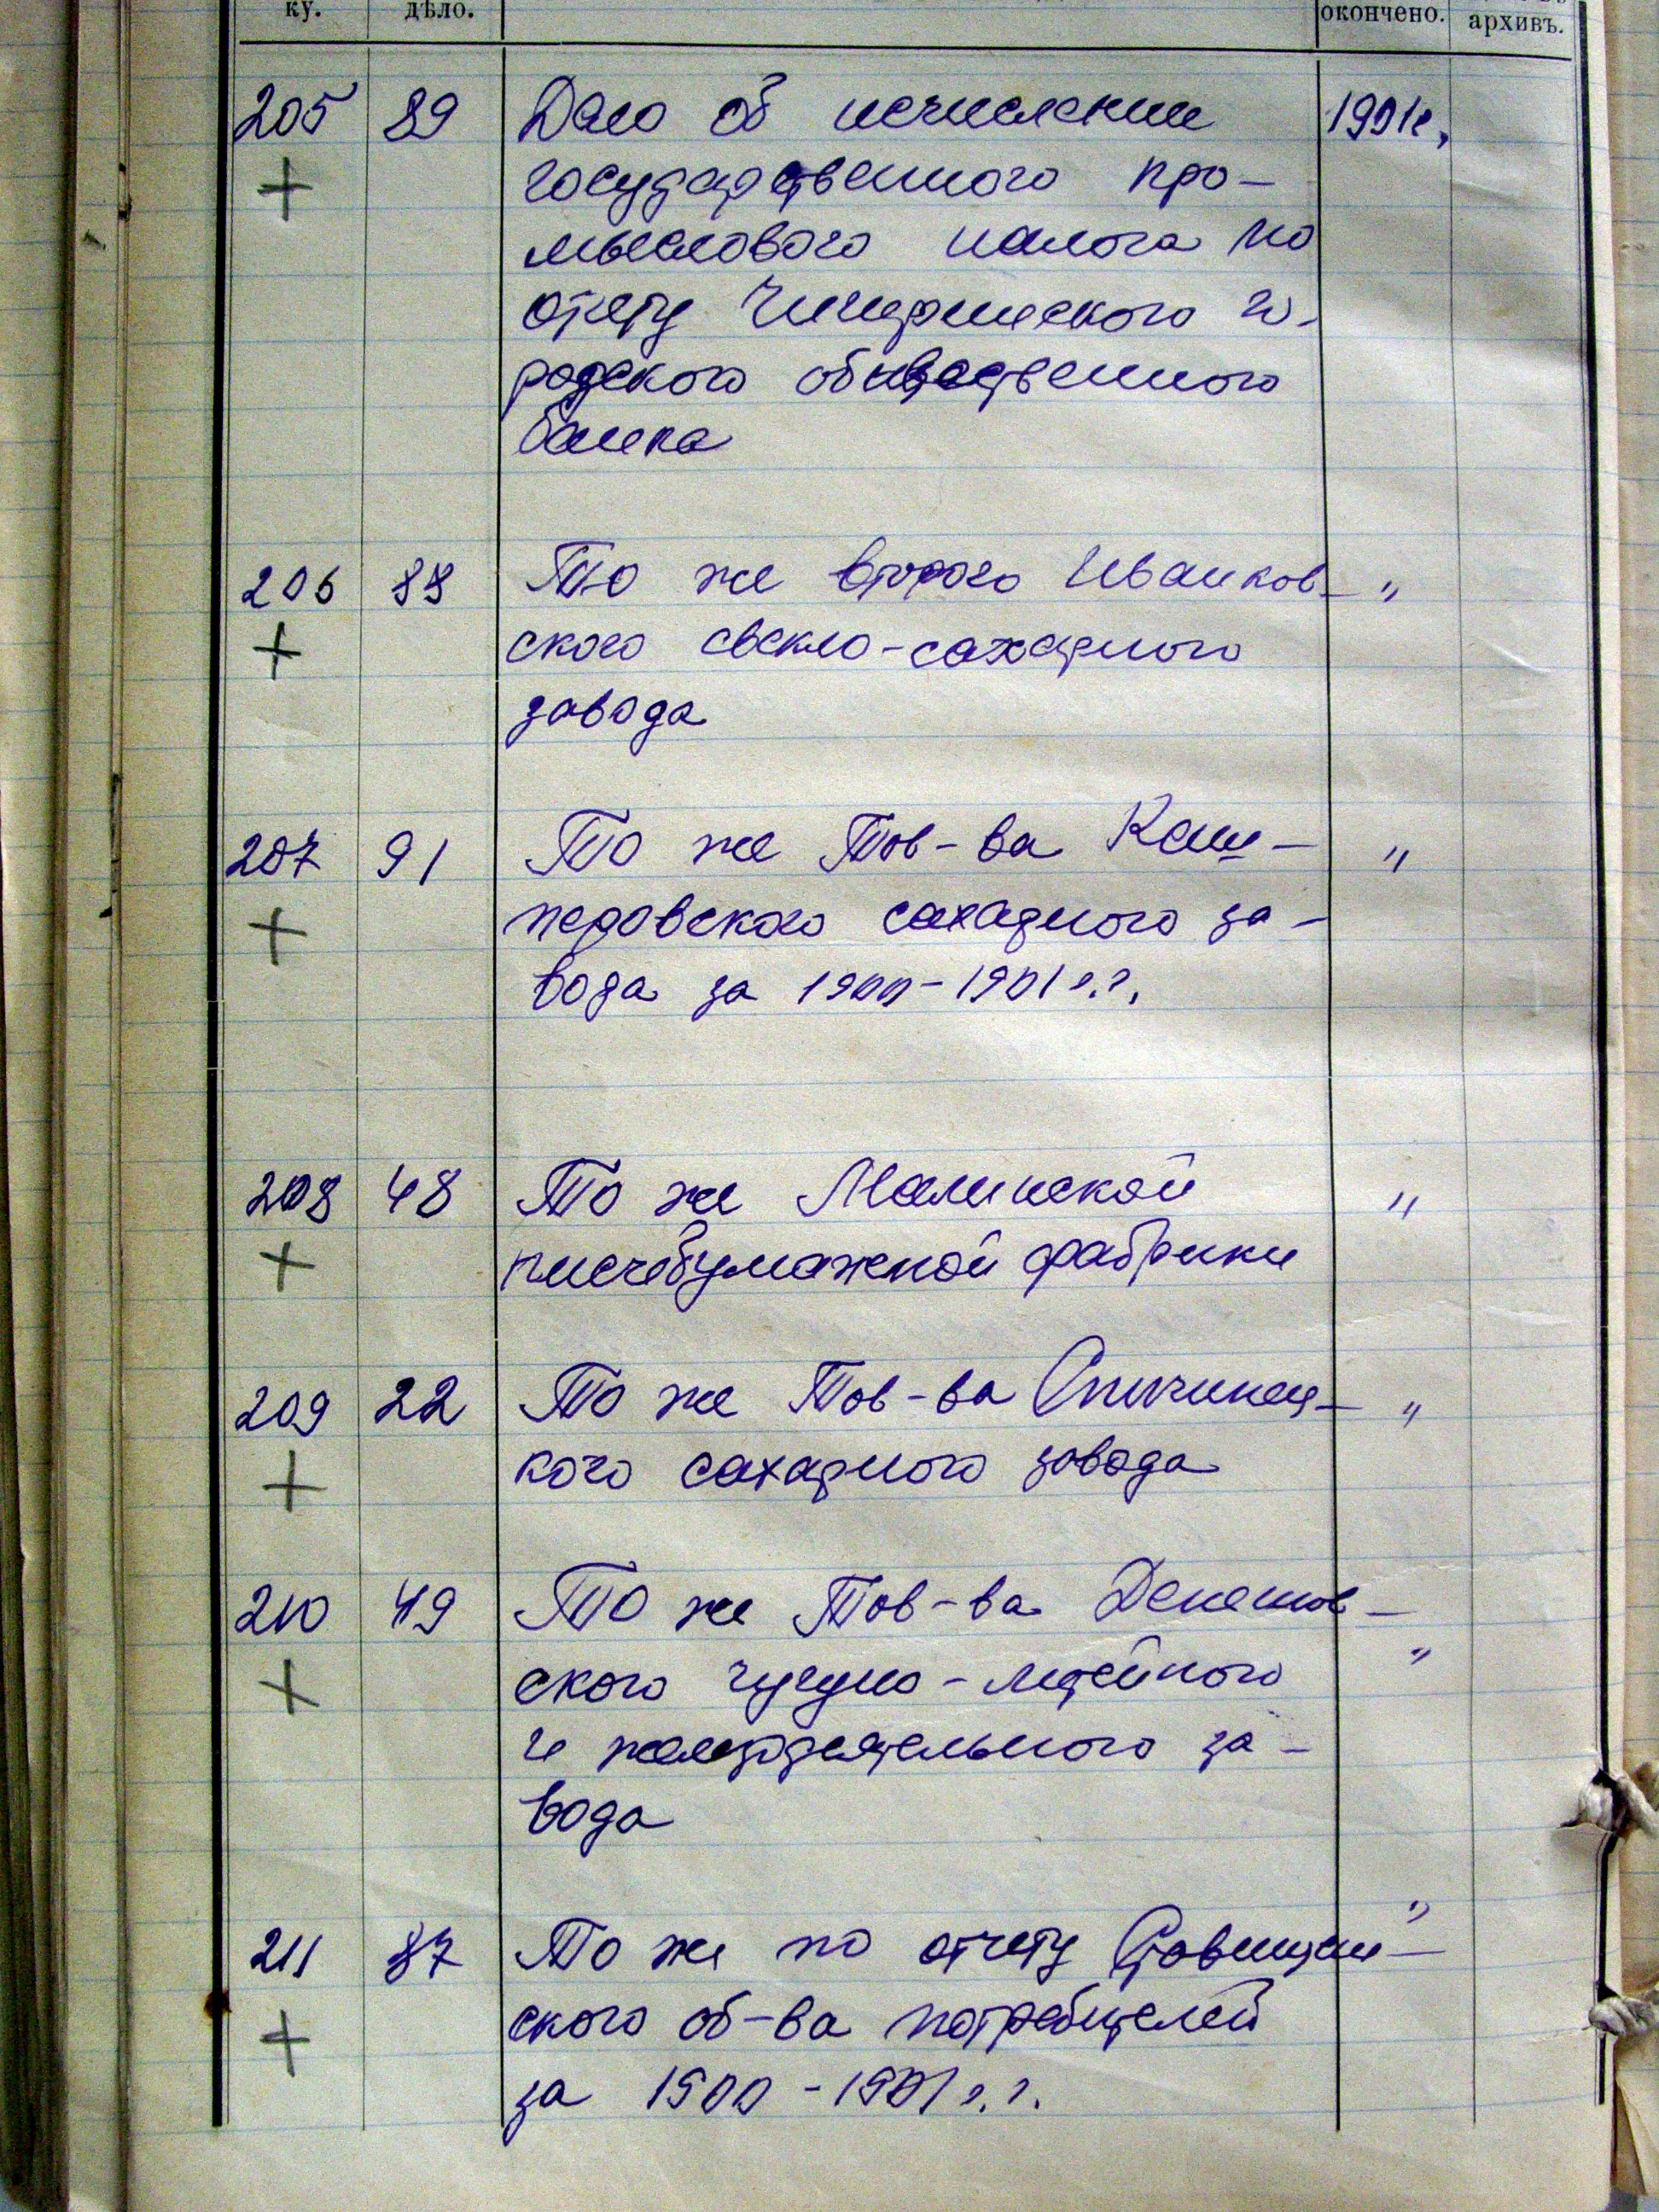 ку. дѣло. окончено. архивъ.
205 89 Дело об исчислении 1901г.
+ государственного про-
мыслового налога по
отчету Чигиринского го-
родского общественного
банка
206 88 То же второго Иванков- "
+ ского свекло-сахарного
завода
207 91 То же Тов-ва Каш- "
+ перовского сахарного за-
вода за 1900-1901 г.г.
208 48 То же Малинской "
+ писчебумажной фабрики
209 22 То же Тов-ва Спичинец- "
+ кого сахарного завода
210 49 То же Тов-ва Денешов- "
+ ского чугуно-литейного
и железоделательного за-
вода
211 87 То же по отчету Ставищан- "
+ ского об-ва потребителей
за 1900-1901 г.г.